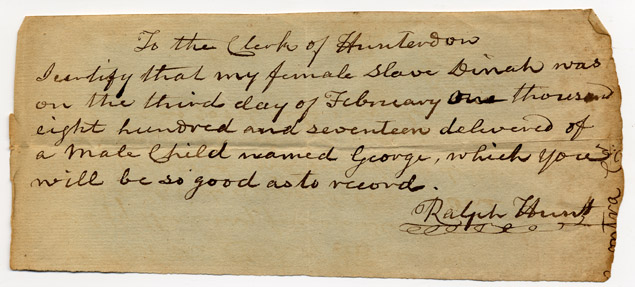 To the Clerk of Hunterdon
I certify that my female slave Dinah was
on the third day of February one thousand
eight hundred and seventeen delivered of
a Male Child named George, which you
will be so good as to record.
Ralph Hunt